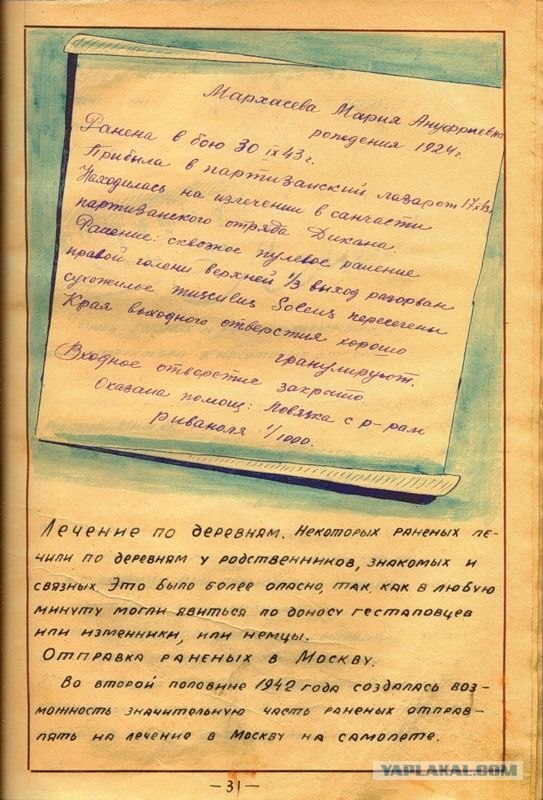 Мархасева Мария Ануфриевна
рождения 1924 г.
Ранена в бою 30 IX 43 г.
Прибыла в партизанский лазарет 17 X 43 г.
Находилась на излечении в санчасти
партизанского отряда Дикана.
Ранение: сквозное пулевое ранение
правой голени верхней 1/3 выход разорван
сухожилье Soleus пересечены
Края выходного отверстия хорошо
гранулируют.
Входное отверстие закрыто.
Оказана помощ: повязка с р-рам
риваноля 1/1000.
Лечение по деревням. Некоторых раненых ле-
чили по деревням у родственников, знакомых и
связных. Это было более опасно, так, как в любую
минуту могли явиться по доносу гестаповцев
или изменники, или немцы.
Отправка раненых в Москву.
Во второй половине 1942 года создалась воз-
можность значительную часть раненых отправ-
лять на лечение в Москву на самолете.
YAPLAKAL.COM
—31—